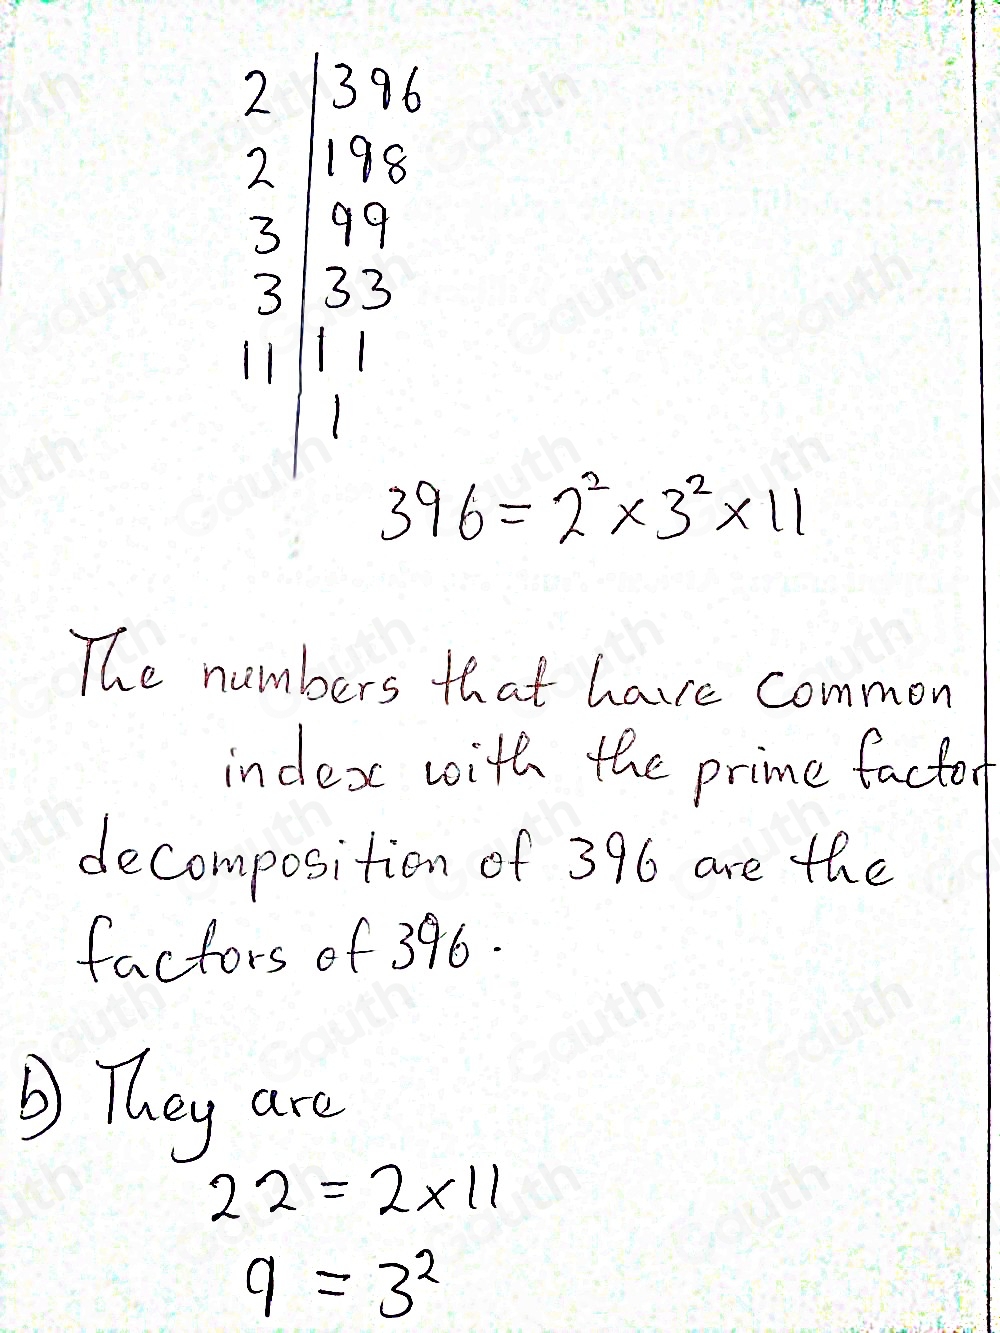 2 | 396
2 | 198
3 | 99
3 | 33
11 | 11
1
396 = 2² × 3² × 11
The numbers that have common
index with the prime factor
decomposition of 396 are the
factors of 396.
b) They are
22 = 2 × 11
9 = 3²